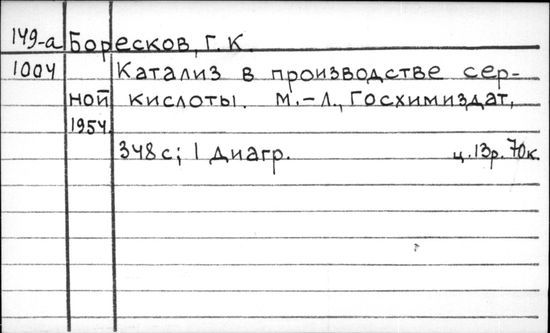 149-а Боресков, Г. К.
1004 Катализ в производстве сер-
ной кислоты. М.-Л., Госхимиздат,
1954.
348 с; 1 диагр. ц. 13р. 70к.